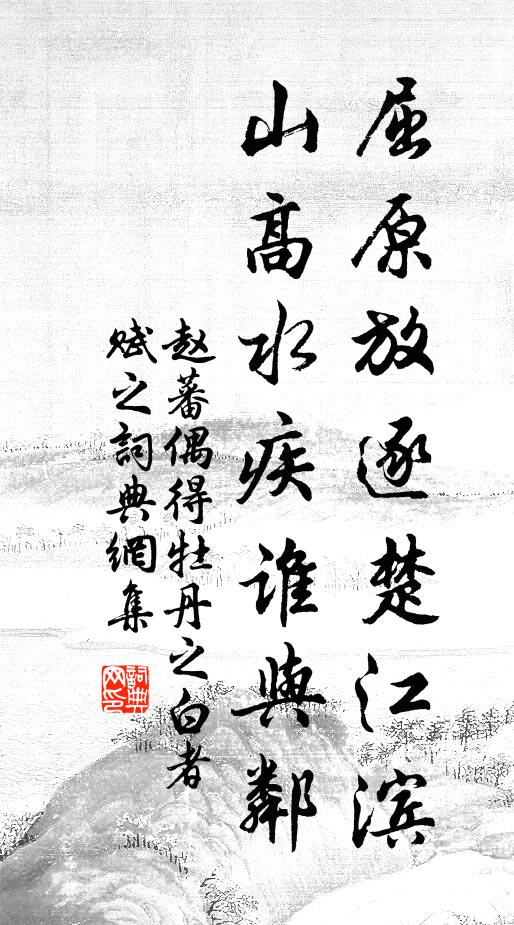 屈原放逐楚江滨
山高水疾谁與鄰
赵蕃偶得牡丹之白者
赋之詞典網集
詞典
网印